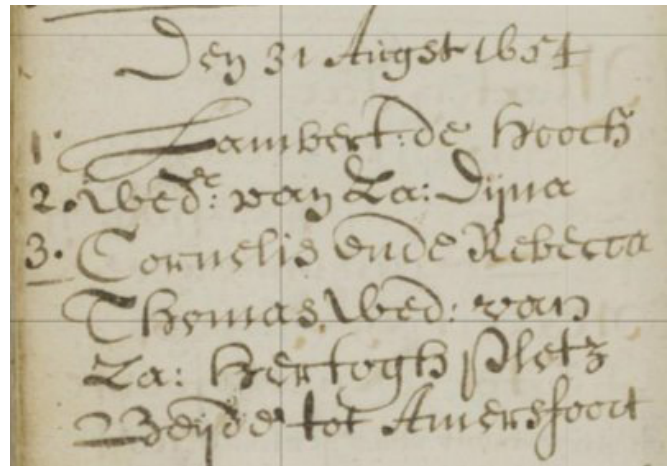 Den 31 Augst 1654
1. Lambert: de Hooch
2. wedr: van Za: Dijna
3. Cornelis ende Rebecca
Thomas wed: van
Za: Hertogh Pletz
Beijde tot Amersfoort